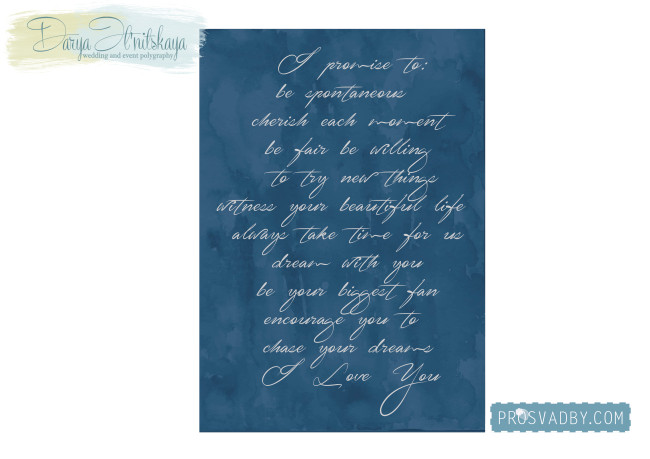 Darya Il'nitskaya
wedding and event polygraphy
I promise to:
be spontaneous
cherish each moment
be fair be willing
to try new things
witness your beautiful life
always take time for us
dream with you
be your biggest fan
encourage you to
chase your dreams
I Love You
PROSVADBY.COM